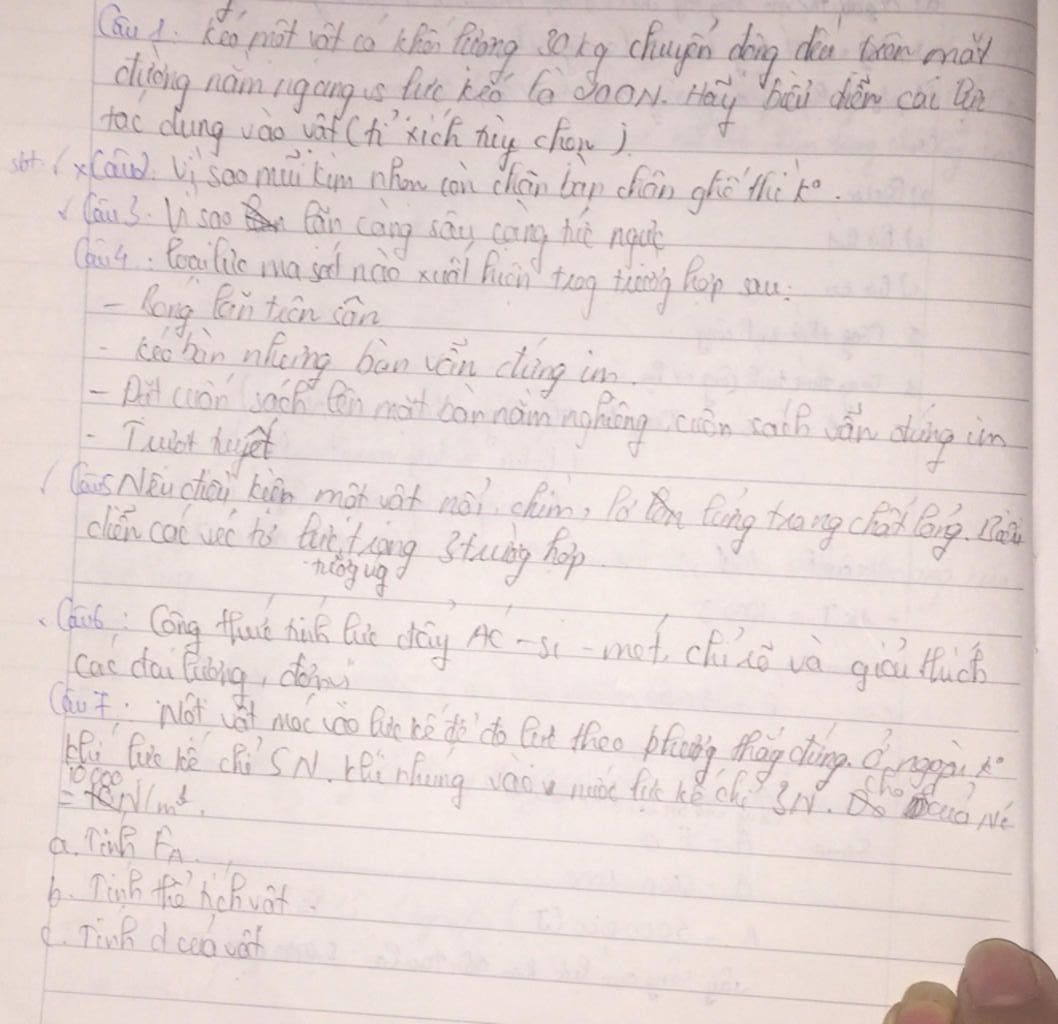 Câu 1. Kéo một vật có khối lượng 30kg chuyển động đều trên mặt
đường nằm ngang lực kéo là N. Hãy biểu diễn các lực
tác dụng vào vật (tỉ xích tùy chọn).
sbt. x Câu2. Vì sao mũi kim nhọn còn chân bàn chân ghế thì ko.
Câu 3. Vì sao lặn càng sâu càng tức ngực
Câu 4: Loại lực ma sát nào xuất hiện trog trường hợp sau:
- Bóng lăn trên sân
- kéo bàn nhưng bàn vẫn đứng im.
- Đặt cuốn sách lên mặt bàn nằm nghiêng cuốn sách vẫn đứng im
- Trượt tuyết
Câu5 Nêu điều kiện một vật nổi, chìm, lơ lửng trong chất lỏng. Biểu
diễn các véc tơ lực trong 3 trường hợp
tươg ug
Câu6: Công thức tính lực đẩy Ác-si-mét, chỉ rõ và giải thích
các đại lượng, đơn vị
Câu 7: Một vật móc vào lực kế để đo lực theo phương thẳng đứng. Ở ngoài ko
khí lực kế chỉ 5N. khi nhúng vào nước lực kế chỉ 3N. cho d của Nc
= 10000 N/m³.
a. Tính FA.
b. Tính thể tích vật.
c. Tính d của vật